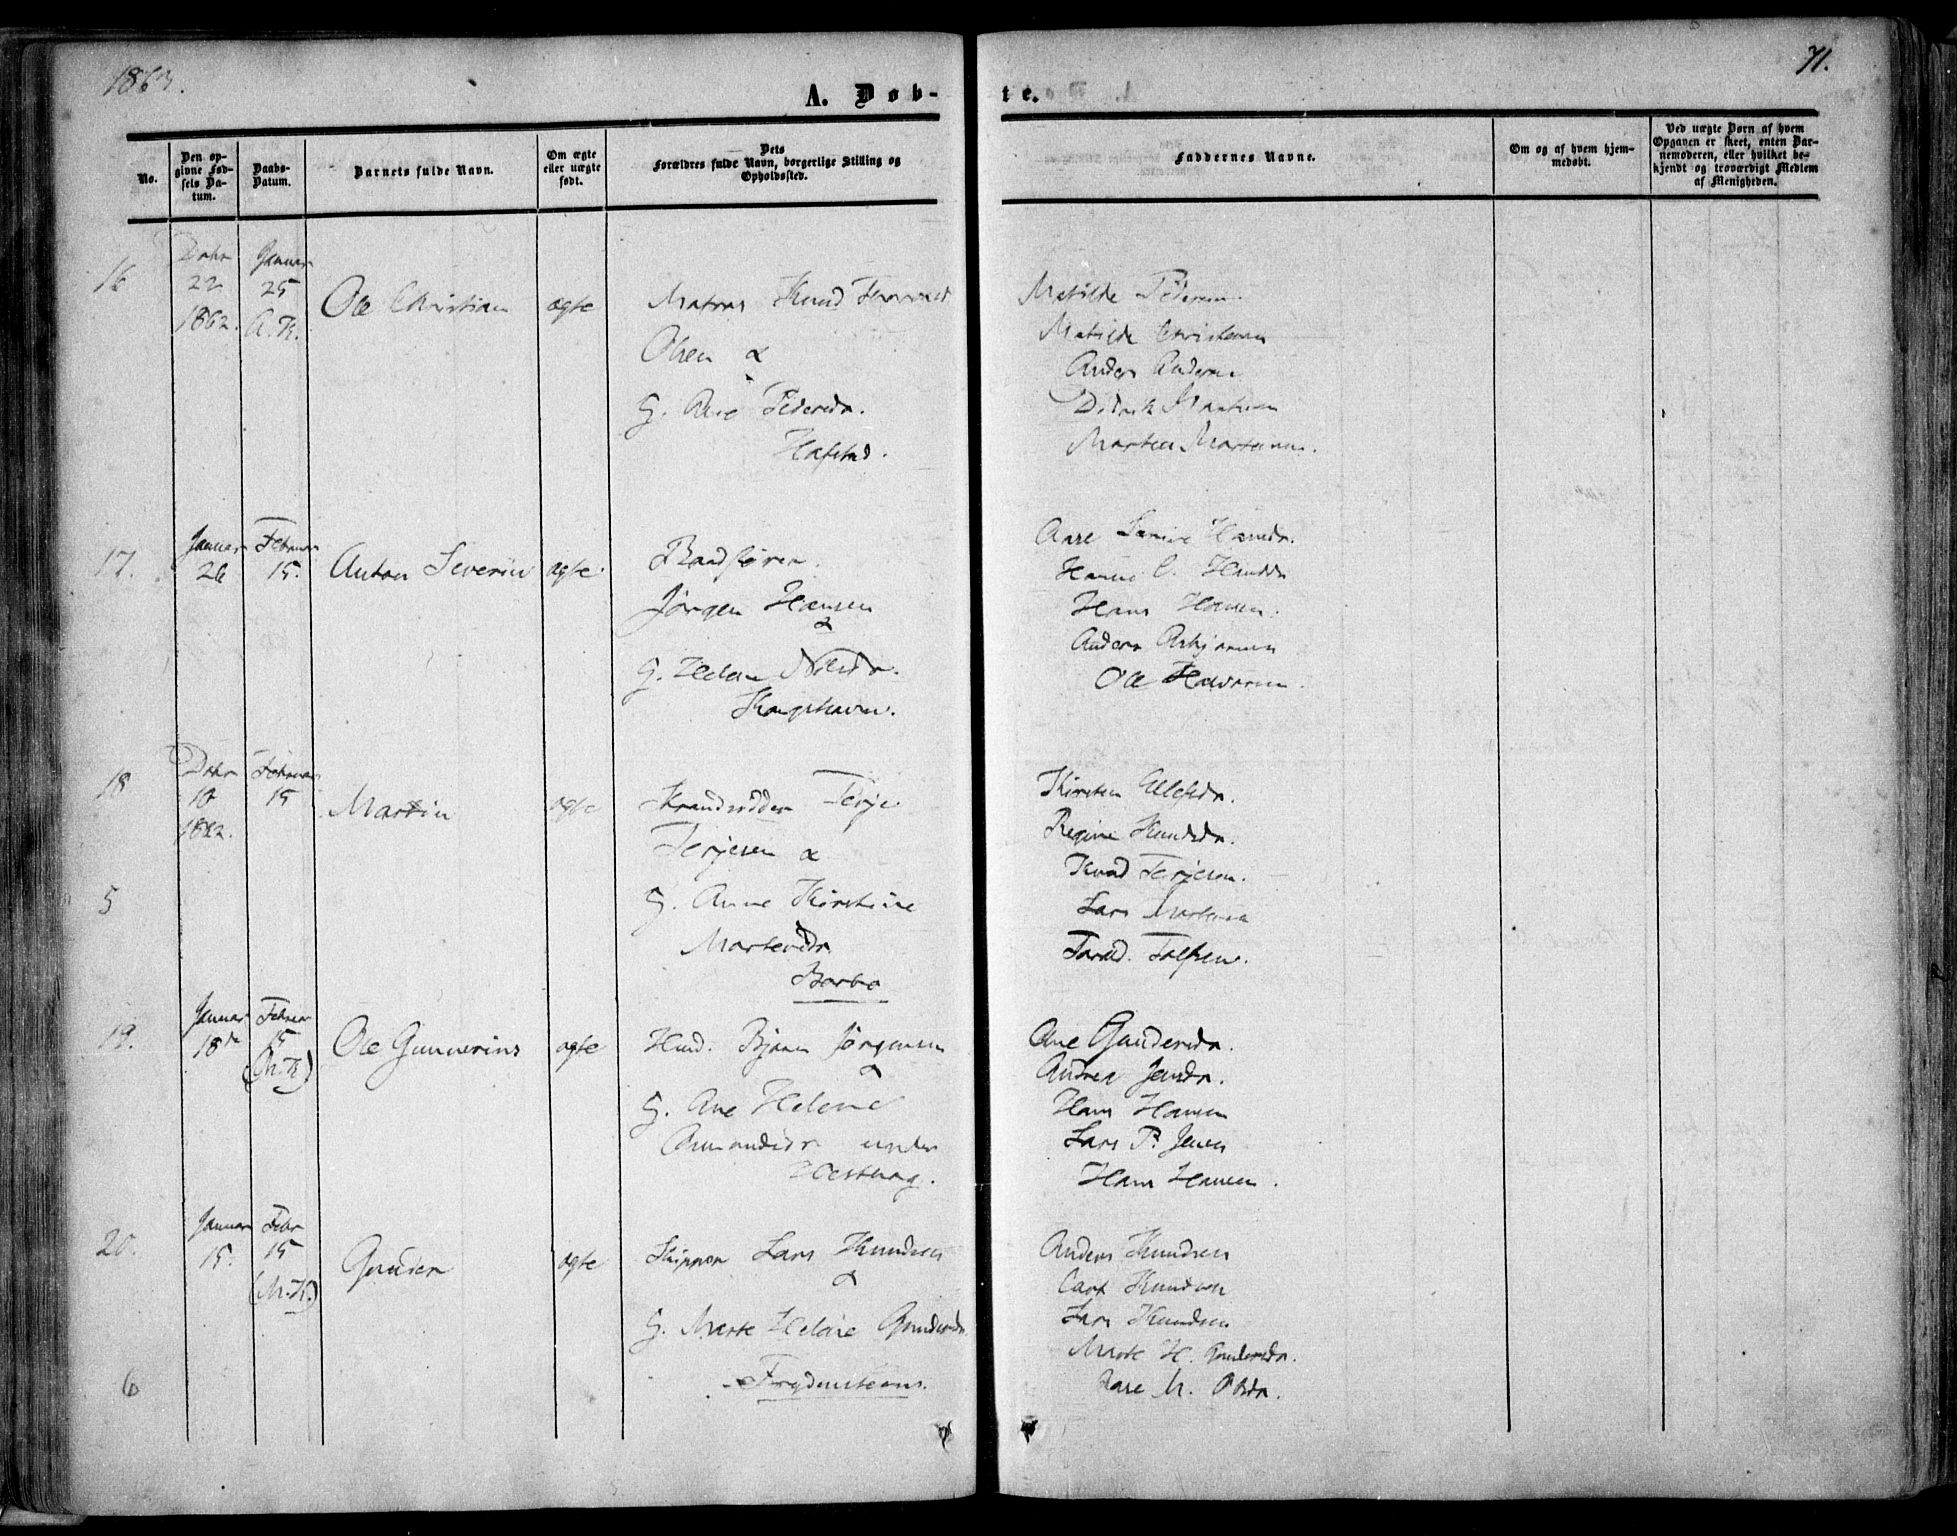 1863.
71.
A. Døb-
te.
No.
Den op-
givne Fød-
sels Da-
tum.
Daabs-
Datum.
Barnets fulde Navn.
Om ægte
eller uægte
født.
Dets
Forældres fulde Navn, borgerlige Stilling og
Opholdssted.
Faddernes Navne.
Om og af hvem hjem-
medøbt.
Ved uægte Børn af hvem
Opgaven er skeet, enten Bar-
nemoderen, eller hvilket be-
kjendt og troværdigt Medlem
af Menigheden.
16
Dcbr
22
1862.
Januar
25
Ole Christian
ægte
Matros Knud
Olsen &
G. Ane Pedersdr.
Hafstad.
Matilde Pedersen
Matilde Christensen
Anders Andersen
Didrik
Morten Mortensen.
17.
Januar
26
Februar
15.
Anton Severin
ægte
Baadfører
Jørgen Hansen
&
G. Helene Nilsdr.
Kongshavn.
Hansdr.
Hanne C. Hansdr
Hans Hansen.
Anders Asbjørnsen
Ole Halvorsen.
18
Dcbr
10
1862.
Februar
15
Martin
ægte
Strandsidder Terje
Terjesen &
G. Anne Kirstine
Mortensdr.
Barbo
Kirsten Ellefsdr.
Regine Knudsdr.
Knud Terjesen.
Lars Mortensen
Tarald
5
19.
Januar
18de
Februar
15
(M.K)
Ole Gunnerius
ægte
Hmd. Bjørn Jørgensen
&
G. Ane Helene
Amundsdr under
Ane Gundersdr.
Andrea Jensdr.
Hans Hansen
Lars P. Jensen
Hans Hansen.
20.
Januar
15.
Febr
15
(M.K.)
Gunder
ægte
Skipper Lars Knudsen
&
G. Marte Helene Gundersdr
Frydensteens.
Anders Knudsen
Carl Knudsen
Lars Knudsen
Marte H. Gundersdr.
Aase M. Olsdr.
6